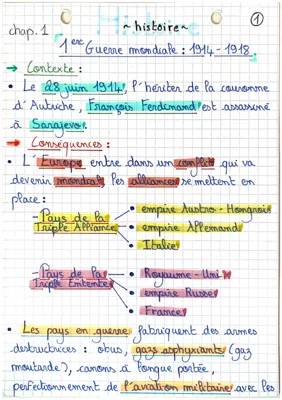 ~ histoire ~ ①
chap. 1
1ere Guerre mondiale : 1914 - 1918
→ Contexte :
• Le 28 juin 1914, l'héritier de la couronne
d'Autriche, François Ferdinand est assassiné
à Sarajevo.
→ Conséquences :
• L'Europe entre dans un conflit qui va
devenir mondial, les alliances se mettent en
place :
- Pays de la Triple Alliance
• empire Austro-Hongrois
• empire Allemand
• Italie
- Pays de la Triple Entente
• Royaume-Uni
• empire Russe
• France
• Les pays en guerre fabriquent des armes
destructrices : obus, gaz asphyxiants (gaz
moutarde), canons à longue portée,
perfectionnement de l'aviation militaire avec les